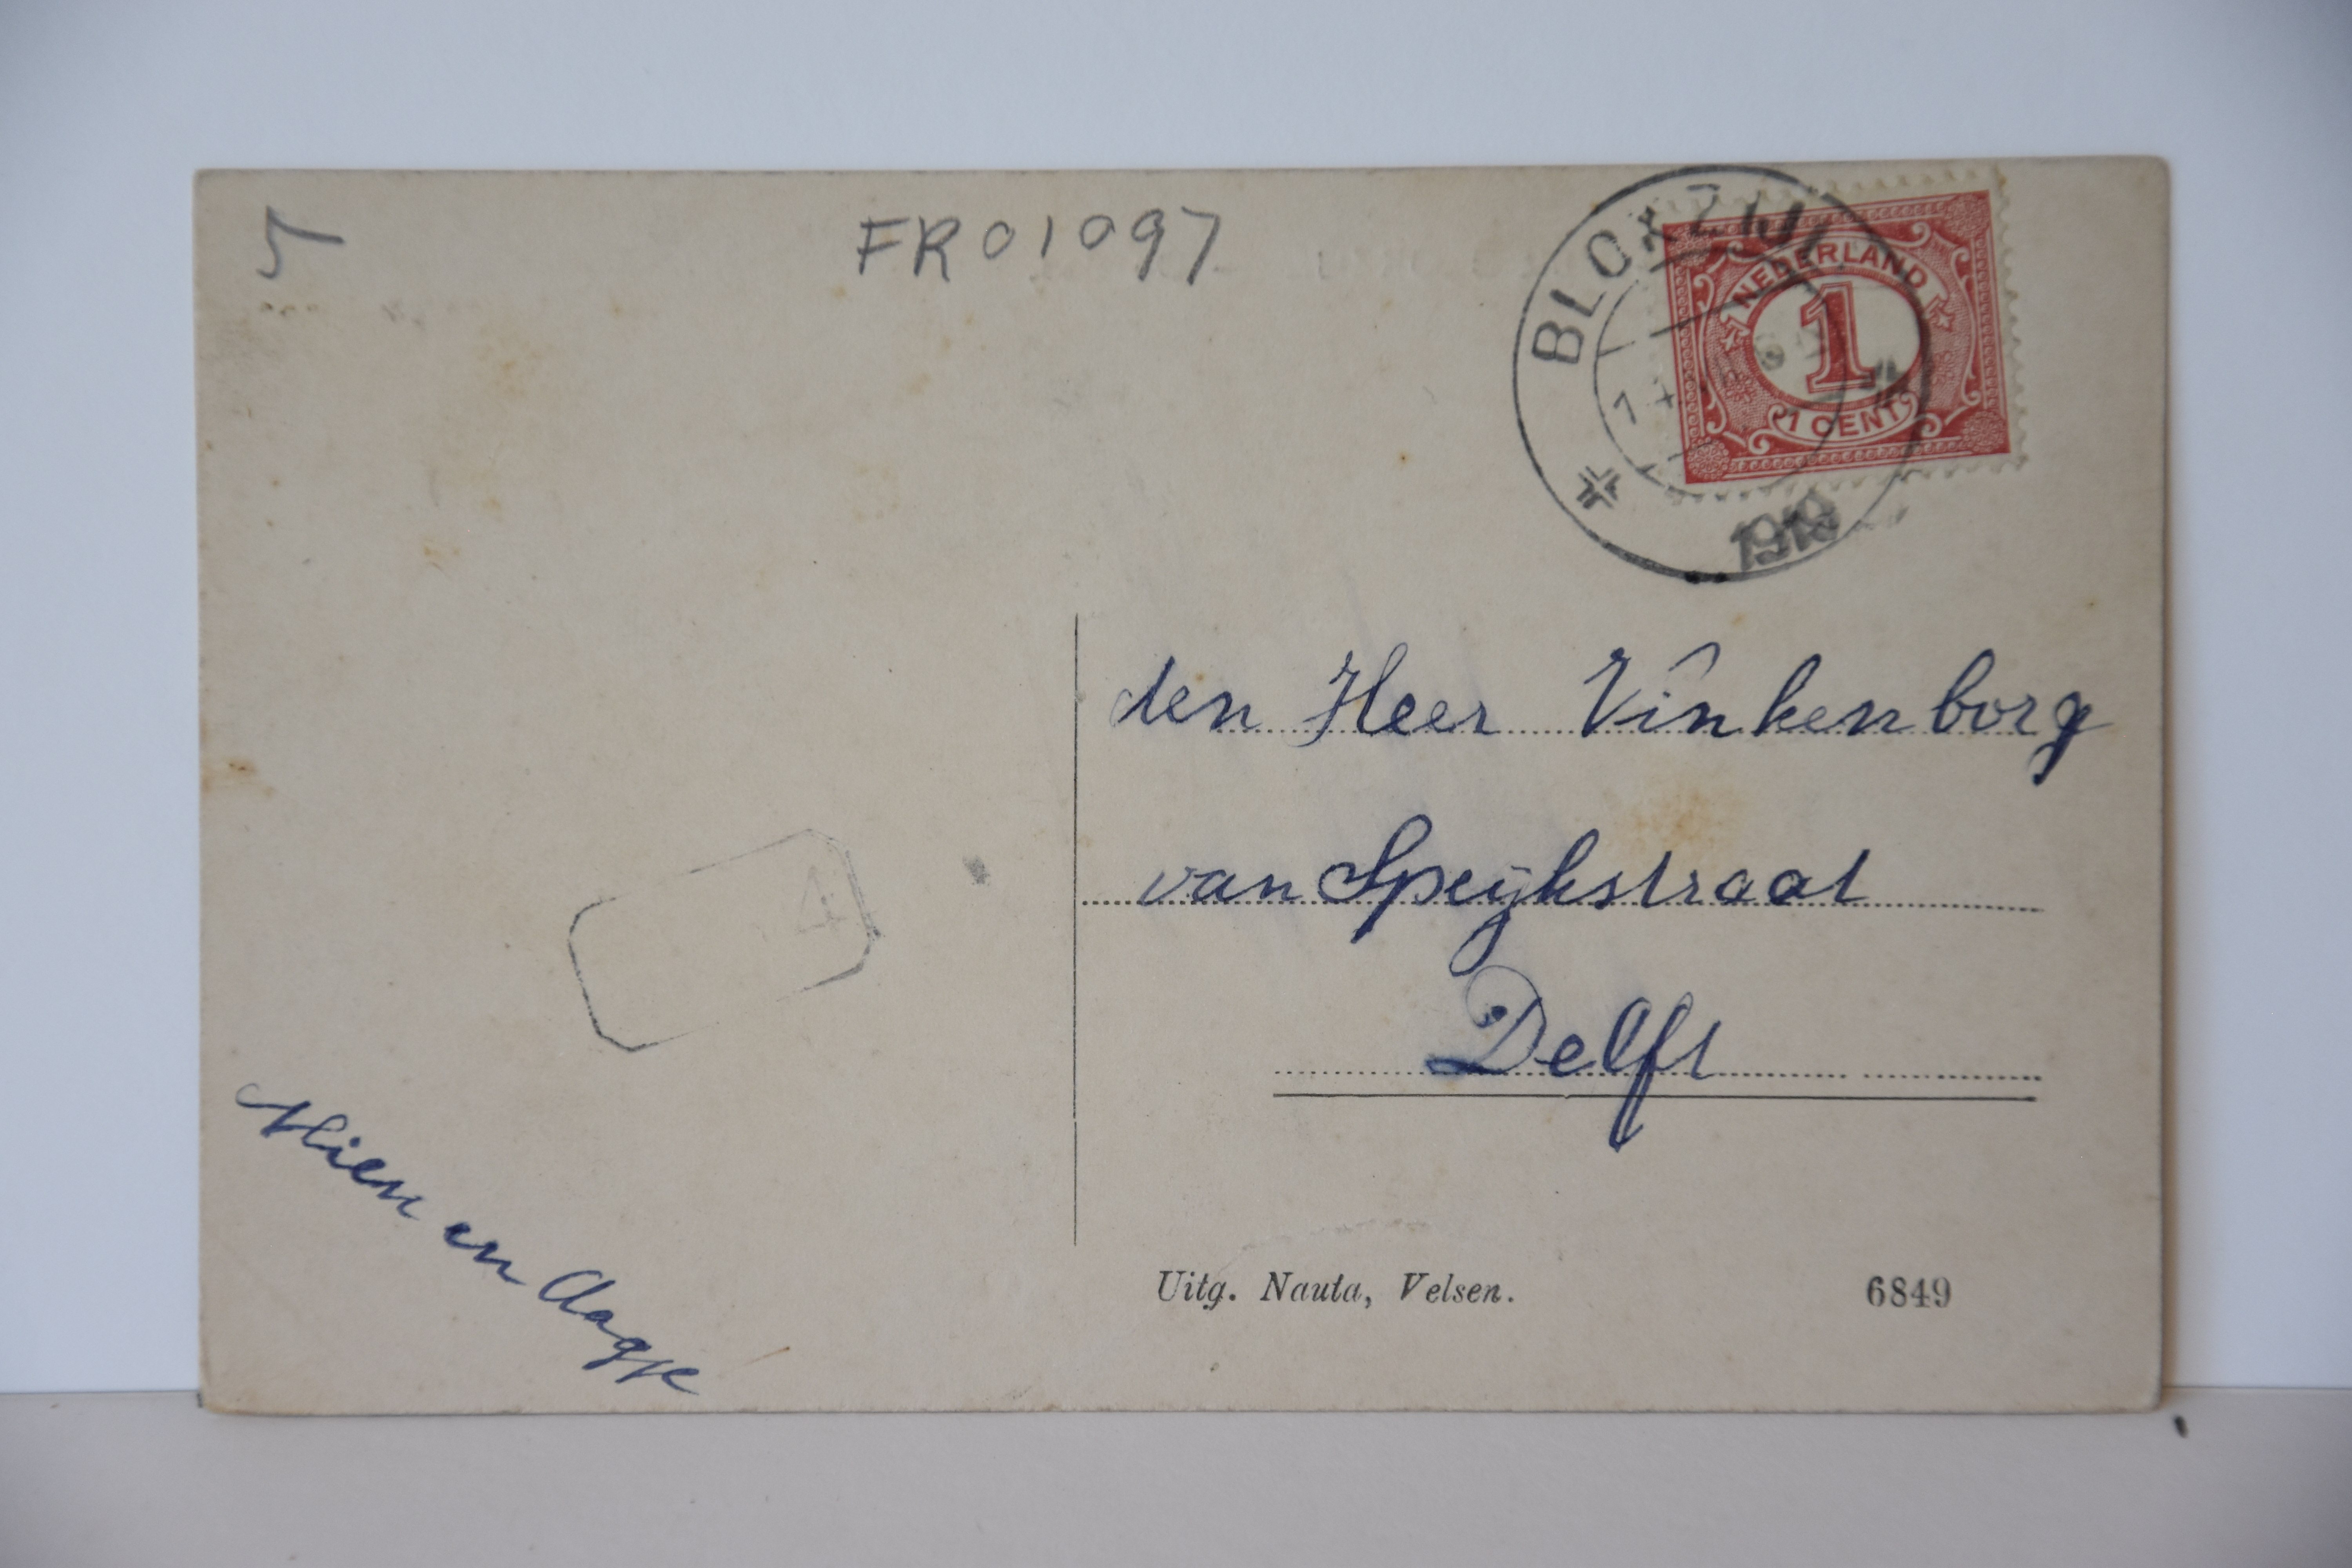 5
FR01097
BLOKZIJL
NEDERLAND
1
1 CENT
1919
den Heer Vinkenborg
van Speijkstraat
Delft
4
Mien en Aagje
Uitg. Nauta, Velsen.
6849